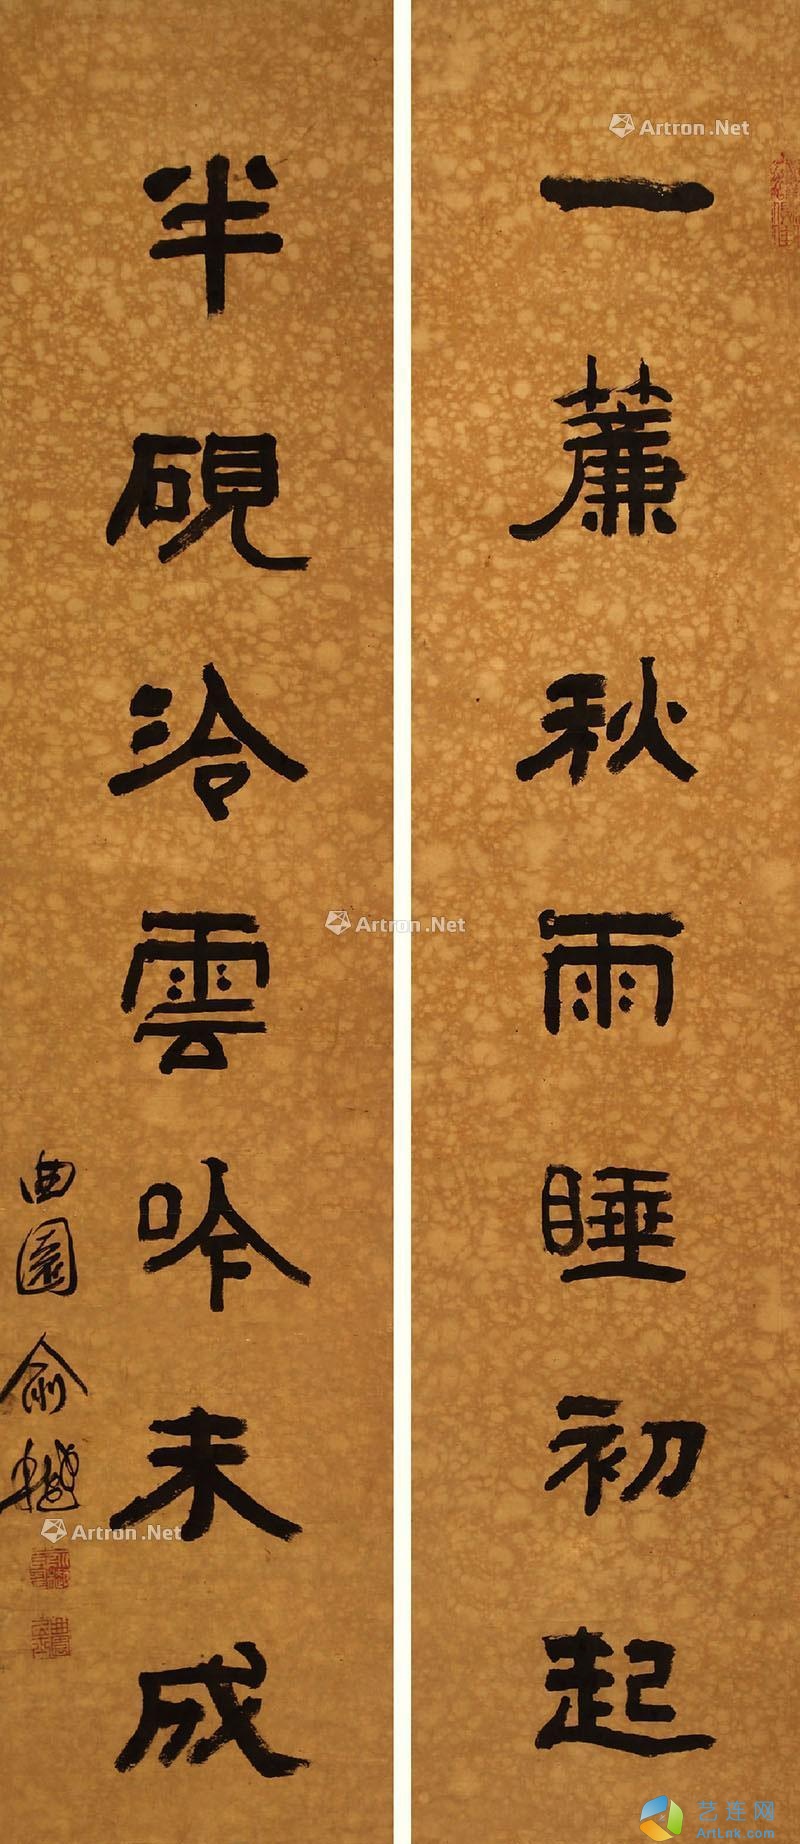 一薕秋雨睡初起
半硯泠雲吟未成
曲園俞樾
Artron.Net
Artron.Net
Artron.Net
艺连网
ArtLnk.com